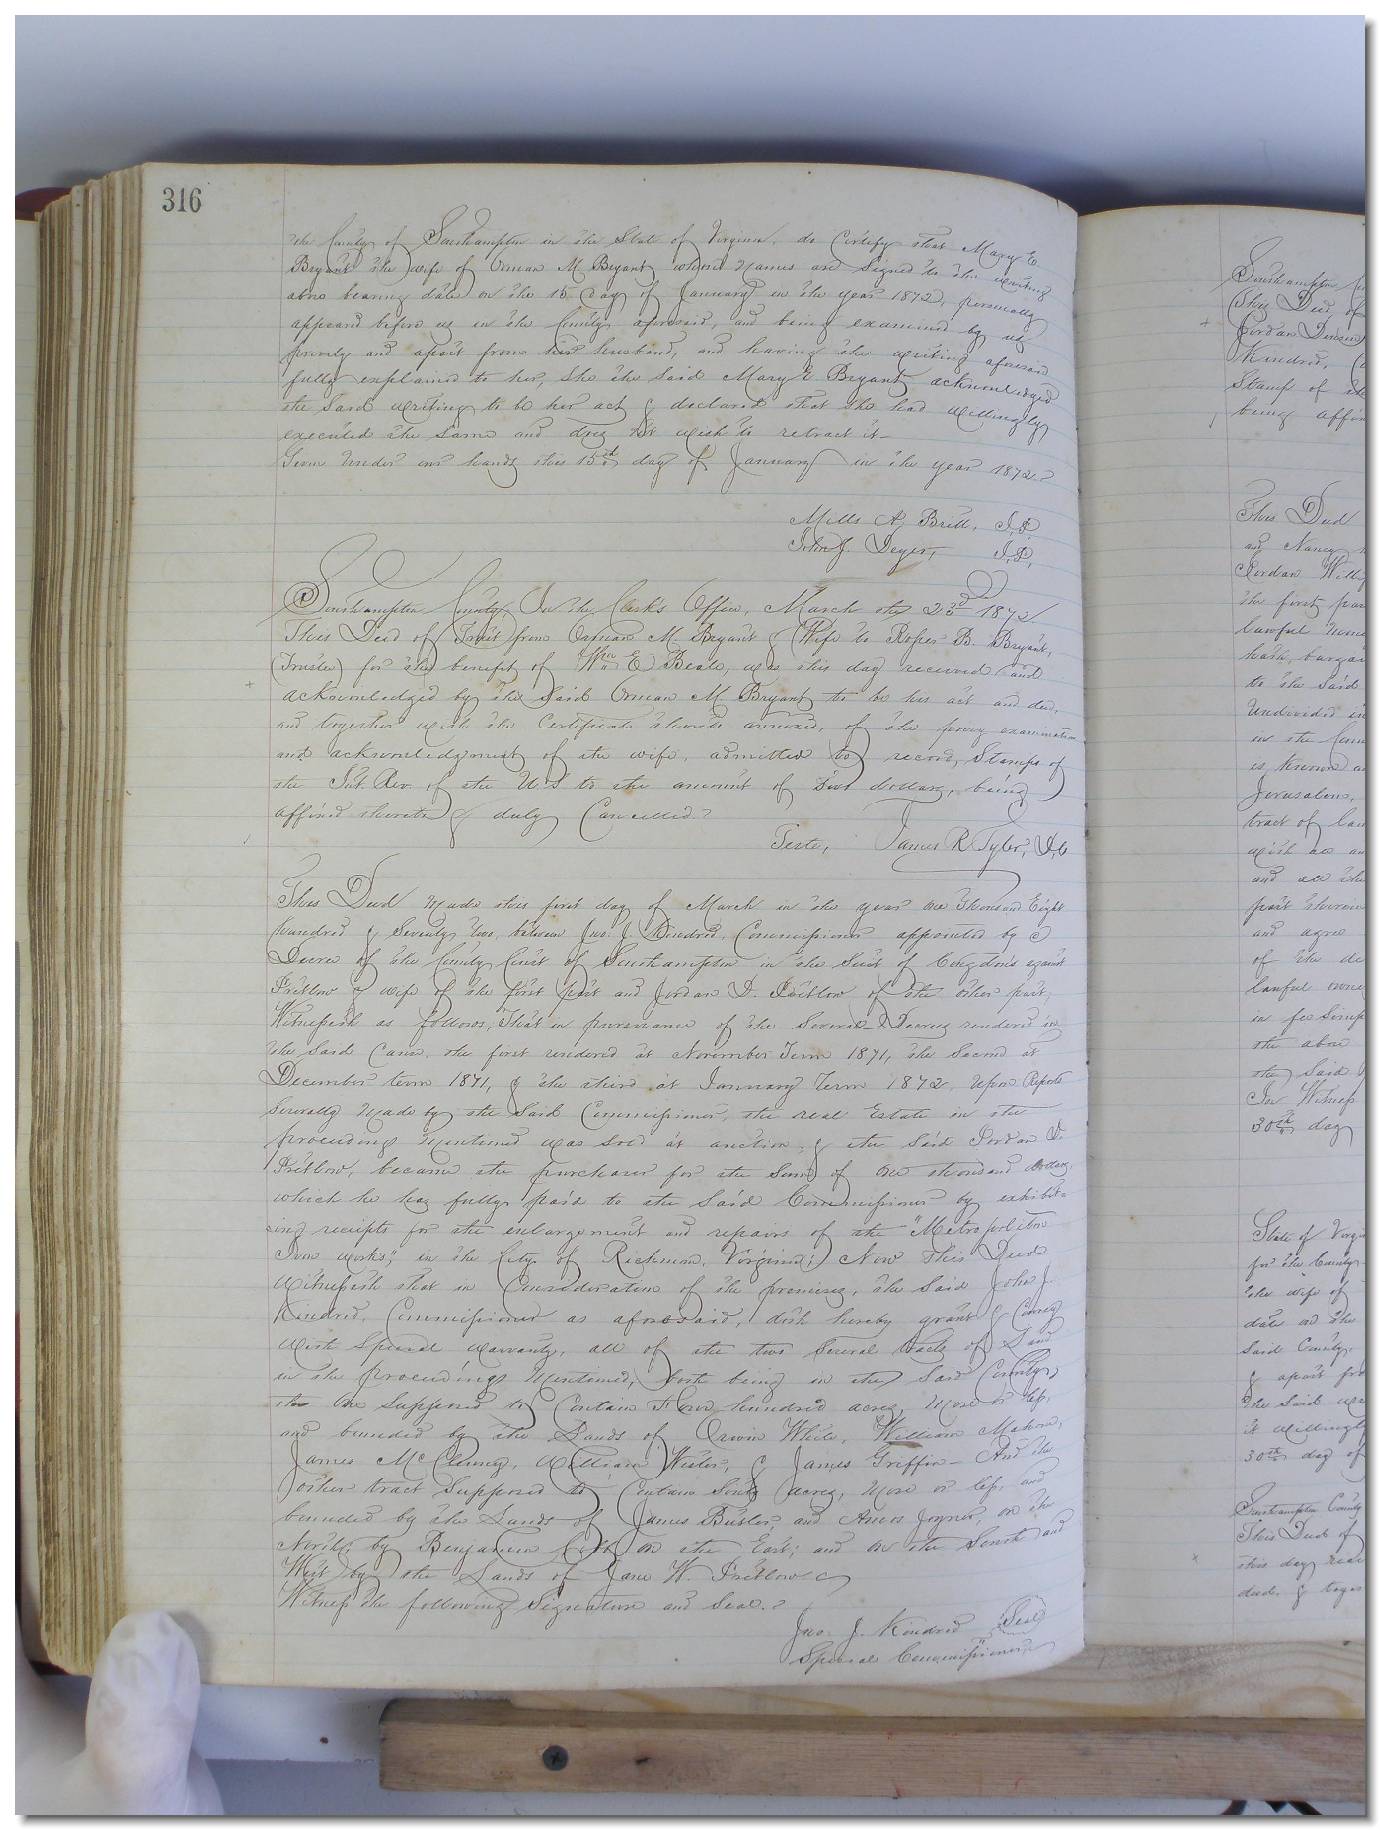 316
the County of Southampton in the State of Virginia, do Certify that Mary E
Bryant the wife of Orman M Bryant whose names are signed to the writing
above bearing date on the 15 day of January in the year 1872, personally
appeard before us in the County aforesaid, and being examined by us
privily and apart from her husband, and having the writing aforesaid
fully explained to her, she the said Mary E Bryant acknowledged
the said writing to be her act & declared that she had willingly
executed the same and does not wish to retract it
Given under our hands this 15th day of January in the year 1872.
Mills A, Britt, J.P.
John J. J.P.
Southampton County In the Clerk's Office, March the 23d 1872
This Deed of Trust from Orman M. Bryant & Wife to Roper B. Bryant,
(Trustee) for the benefit of Wm E Beale, was this day received and
acknowledged by the said Orman M Bryant to be his act and deed,
and together with the Certificate thereto annexed, of the privy examination
and acknowledgment of the wife, admitted to record, Stamps of
the Int. Rev. of the U.S to the amount of dollars, being
affixed thereto & duly Cancelled
Teste, James R Tyler, D,C
This Deed made this first day of March in the year One Thousand Eight
hundred & Seventy two, between Jno. J. Kindred, Commissioner appointed by a
Decree of the County Court of Southampton in the Suit of against
Pretlow & wife of the first part and Jordan D. Pretlow of the other part,
Witnesseth as follows, That in pursuance of the Several Decrees rendered in
the said Cause, the first rendered at November Term 1871, the Second at
December term 1871, & the third at January Term 1872, upon Reports
Severally made by the said Commissioner, the real Estate in the
proceedings mentioned was sold at auction, & the said Jordan D.
Pretlow, became the purchaser for the Sum of One thousand dollars,
which he has fully paid to the said Commissioner by exhibit-
ing receipts for the enlargement and repairs of the "Metropoliton
Iron works," in the City of Richmon, Virginia; Now This Deed
Witnesseth that in Consideration of the premises, the said John J.
Kindred, Commissioner as aforesaid, doth hereby grant & Convey
with Special warranty, all of the two Several tracts of Land
in the proceedings mentioned, both being in the said County,
the One Supposed to Contain Four hundred acres, more or less,
and bounded by the Lands of Orwin White, William Mahone,
James McClenny, William Wester, & James Griffin - And the
other tract Supposed to Contain acres, more or less, and
bounded by the Lands of James Butler, and Amos Joyner, on the
North; by Benjamin Cobb on the East; and on the South and
West by the Lands of Jane W. Pretlow
Witness the following Signature and Seal.
Jno. J. Kindred Seal
Special Commissioner,
Southampton
This Deed, of
Jordan
Kindred,
Stamp of
being
This Deed
and Nancy
Jordan
the first par
lawful
hath, bargai
to the said
Undivided in
in the Coun
is known a
Jerusalem,
tract of lan
with
and all the
part
and agree
of the de
lawful owne
in fee Simp
the above
the said
In Witness
30th day
State of Virgi
for the County
the wife of
date on the
said County,
& apart fro
the said
it willingly
30th day of
Southampton County
This Deed of
this day rece
deed, &